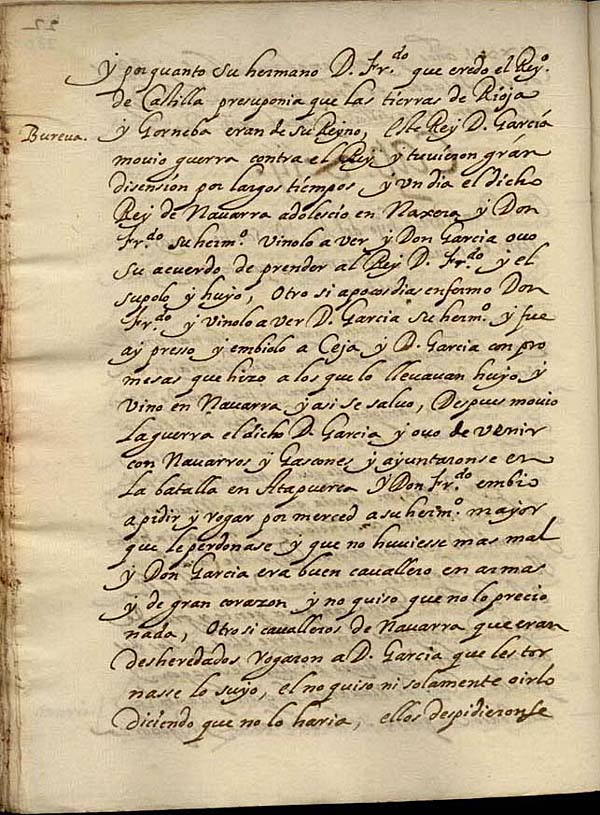 y por quanto su hermano D. Fr.do que eredo el Rey.o
de Castilla presuponia que las tierras de Rioja
Bureva.
y Gorneba eran de su Reyno, este Rey D. Garcia
movio guerra contra el Rey y tuvieron gran
disension por largos tiempos y un dia el dicho
Rey de Navarra adolescio en Naxera y Don
Fr.do su herm.o vinolo a ver y Don Garcia ovo
su acuerdo de prender al Rey D. Fr.do y el
supolo y huyo, Otro si apocos dias enfermo Don
Fr.do y vinolo a ver D. Garcia su herm.o y fue
ay presso y embiolo a Ceja y D. Garcia con pro
mesas que hizo a los que lo llevavan huyo y
vino en Navarra y asi se salvo, Despues movio
la guerra el dicho D. Garcia y ovo de venir
con Navarros y Gascones y ayuntaronse en
la batalla en Atapuerca y Don Fr.do embio
a pidir y rogar por merced a su herm.o mayor
que le perdonase y que no huviesse mas mal
y Don Garcia era buen cavallero en armas
y de gran corazon y no quiso que no lo precio
nada, Otro si cavalleros de Navarra que eran
desheredados rogaron a D. Garcia que les tor
nasse lo suyo, el no quiso ni solamente oirlo
diciendo que no lo haria, ellos despidieronse